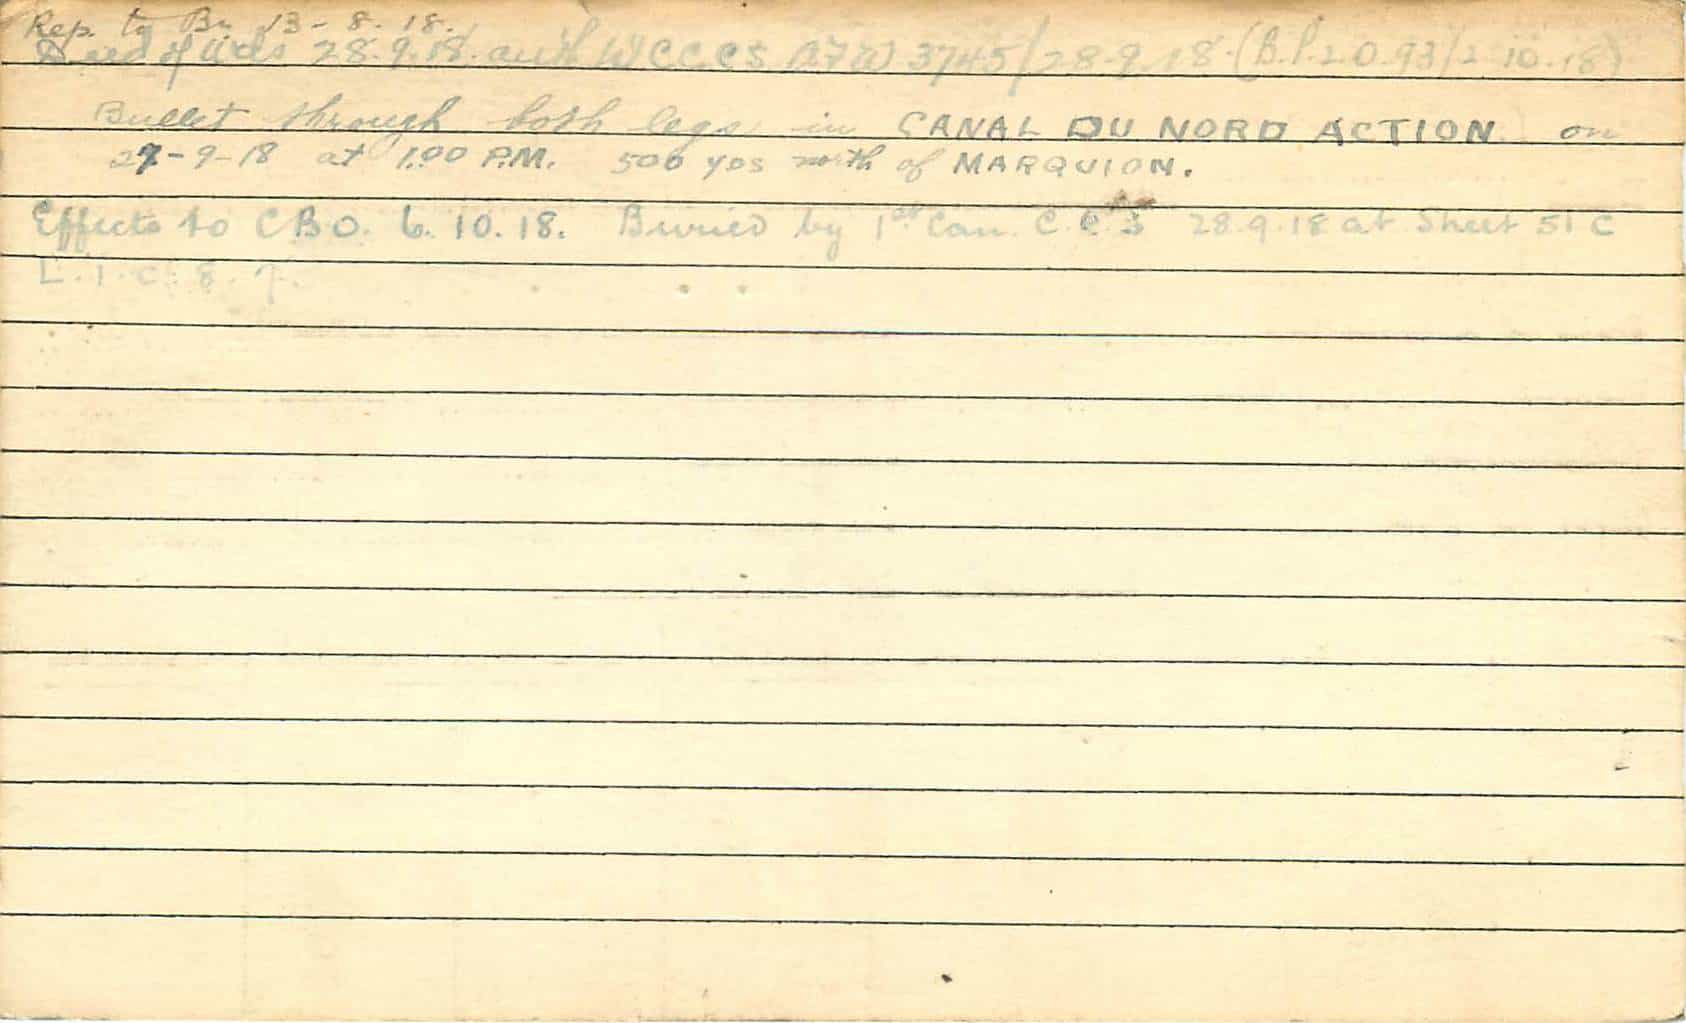 Rep. to Bn. 13-8-18.
Died of Wds 28.9.18. auth W CCCS AFW 3745/28-9-18. (B.P.2.O.93/2.10.18)
Bullet through both legs in CANAL DU NORD ACTION on
27-9-18 at 1.00 P.M. 500 yds north of MARQUION.
Effects to CBO. 6.10.18. Buried by 1st Can. C.C.S 28.9.18 at Sheet 51 C
L.1.c.8.7.